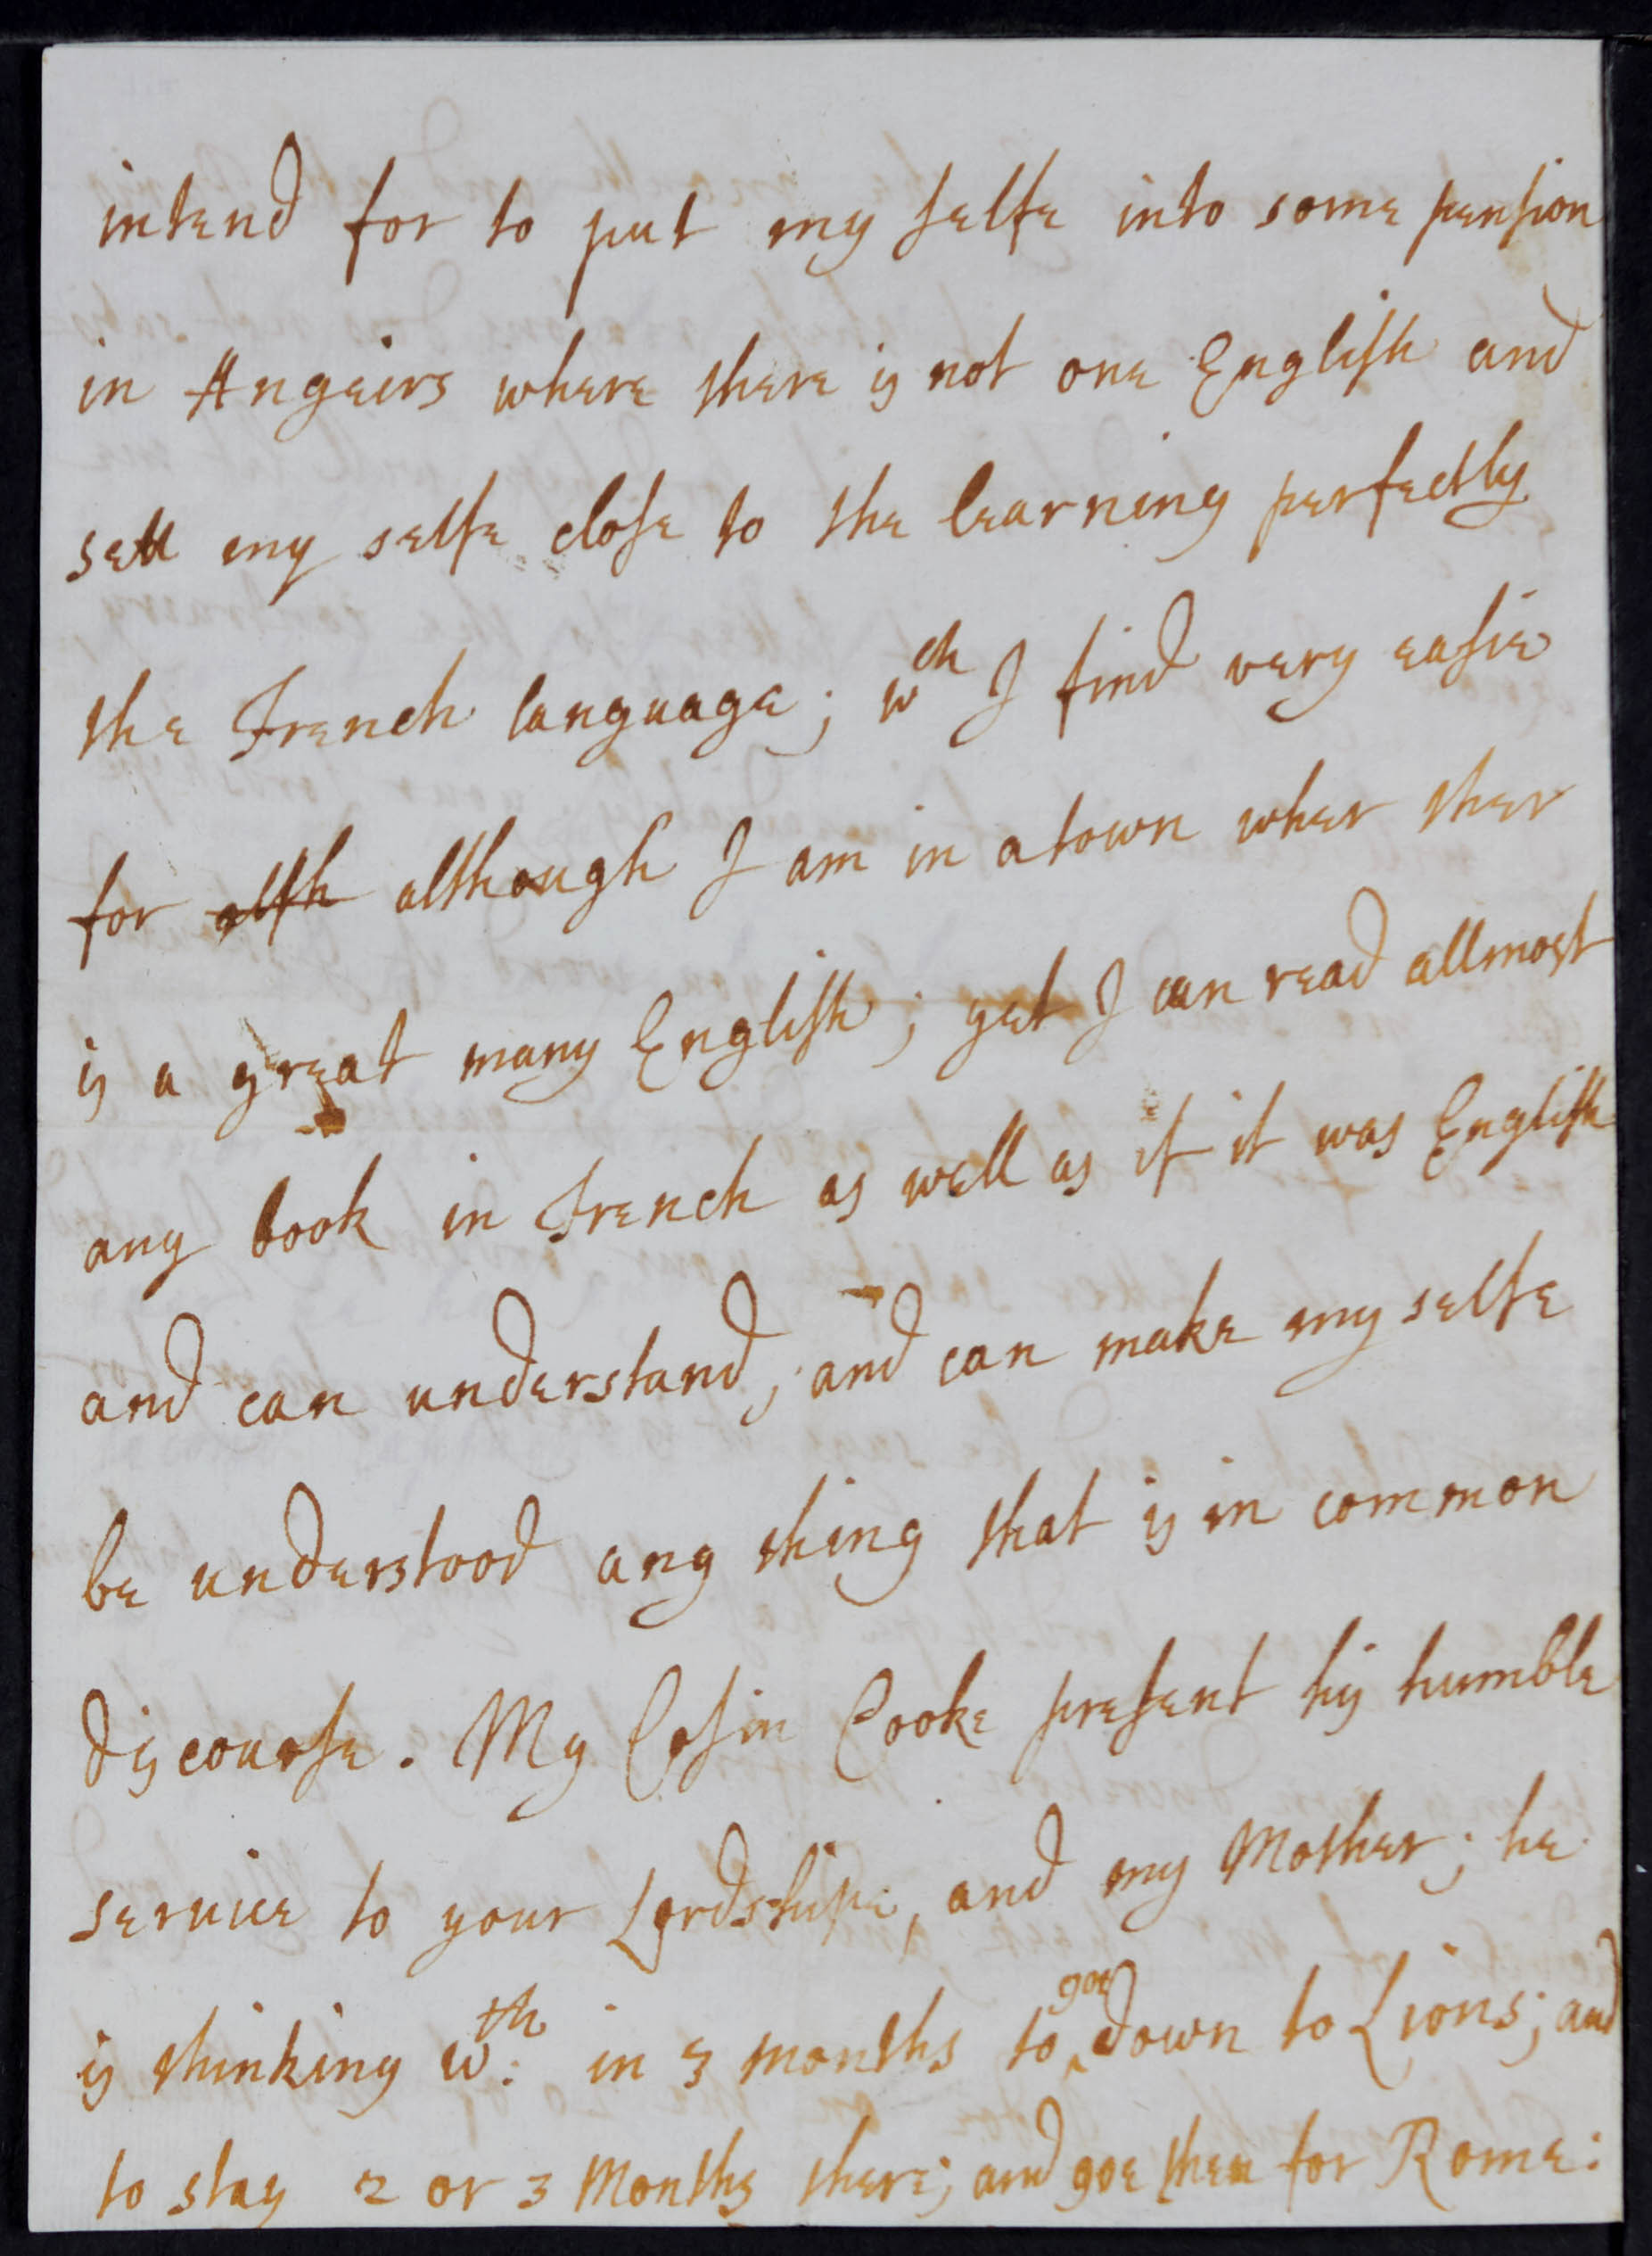 intend for to put my selfe into some pension
in Angeirs where there is not one English and
sett my selfe close to the learning perfectly
the French language; wch I find very easie
for alth although I am in a town wher ther
is a great many English; yet I can read allmost
any book in French as well as if it was English
and can understand, and can make my selfe
be understood any thing that is in common
discourse. My Cosin Cooke present his humble
seruice to your Lordshipe, and my Mother; he
is thinking wth: in 3 months to goe down to Lions; and
to stay 2 or 3 Months there; and goe then for Rome: